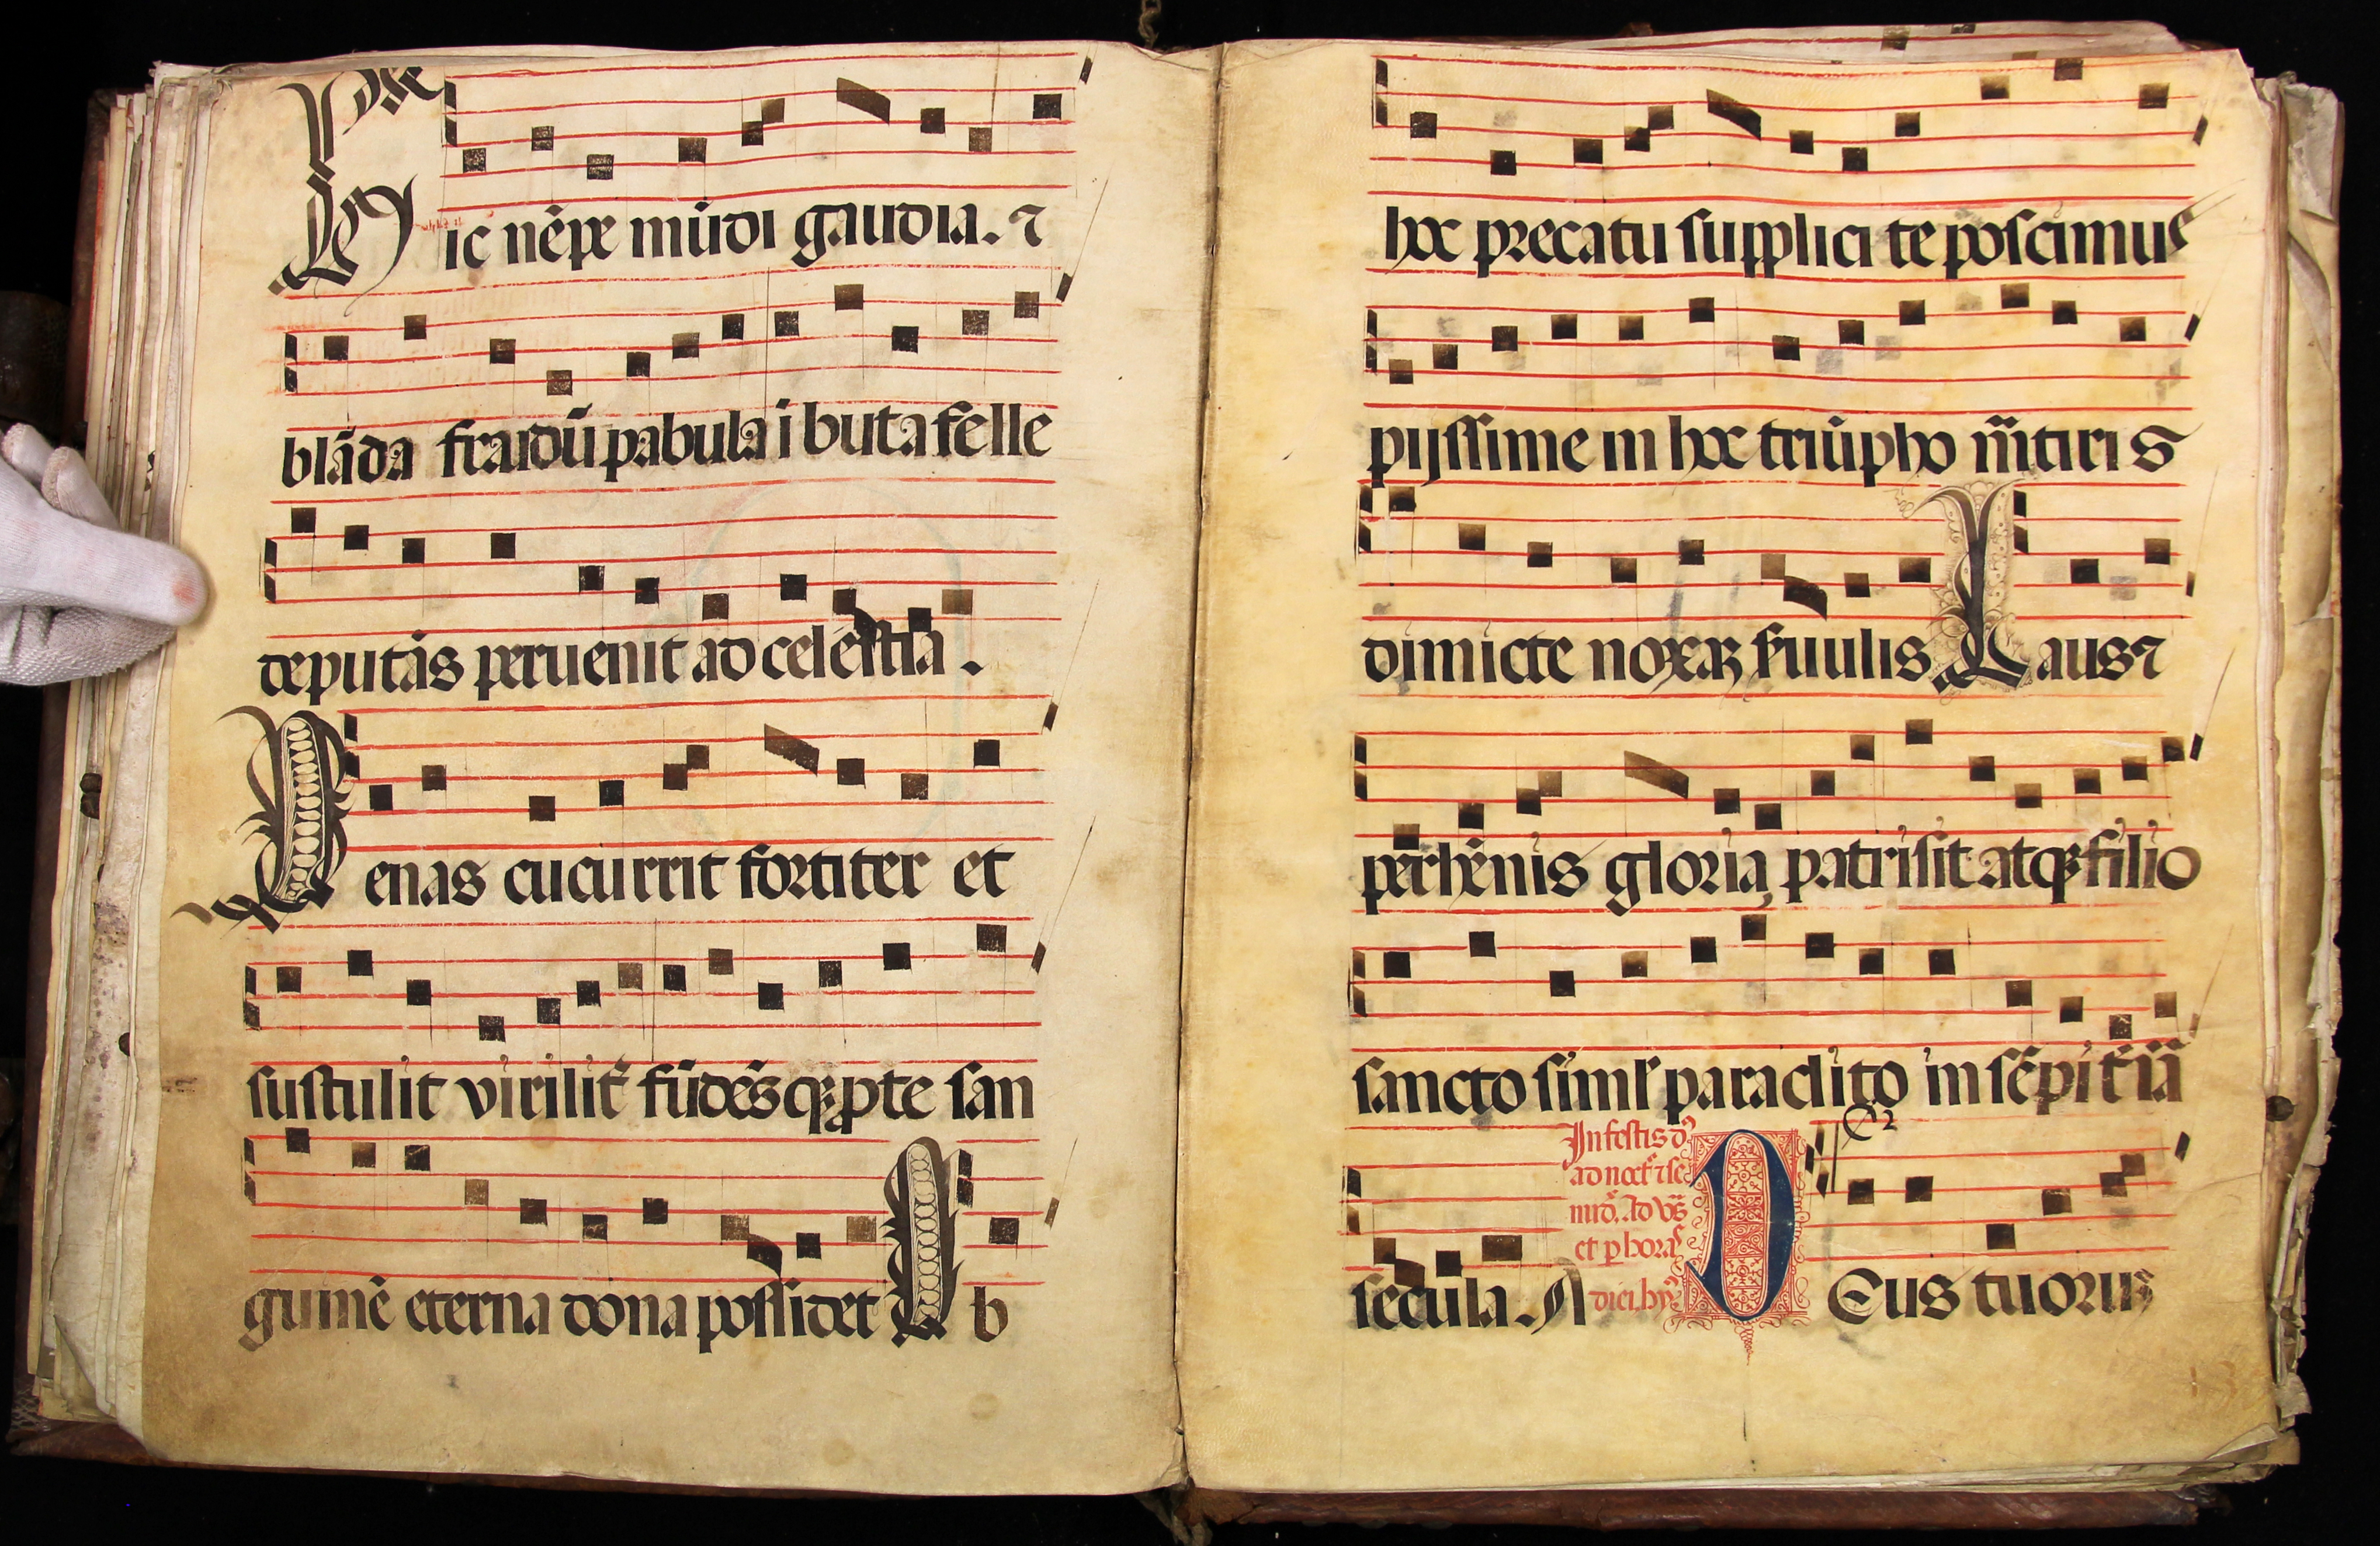 Hic nēpe mūdi gaudia. ⁊
blāda fraudū pabula ībuta felle
deputās peruenit ad celestia.
Penas cucurrit fortiter et
sustulit virilit̄ fūdēsqꝫ ꝑ te san
guinē eterna dona possidet Ob
hoc precatu supplici te poscimus
pijssime in hoc triūpho m̄tiris
dimicte noxaꝝ s̄uulis Laus ⁊
perhēnis gloria patri sit atqꝫ filio
sancto siml' paraclito in sēpit̄na
secula. A
In festis d
ad noct̄ ⁊ sc
et ꝑ horas
diei. hy
Deus tuorum